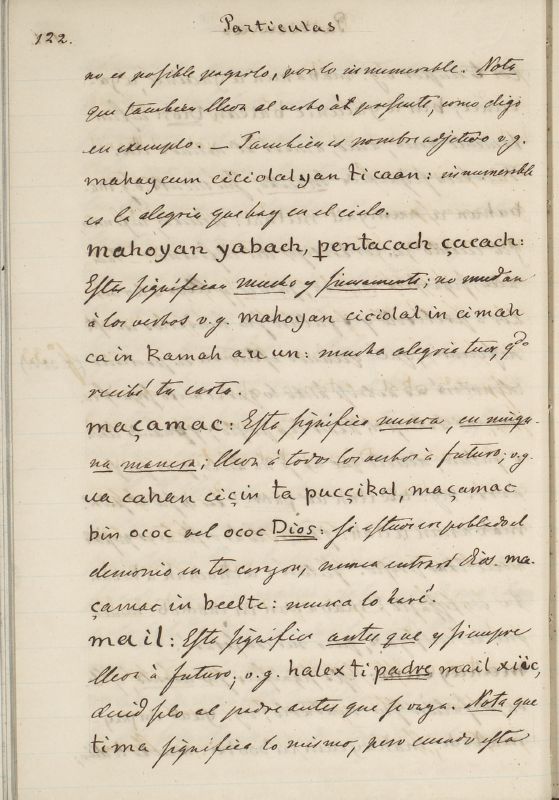 122.
Particulas
no es posible pagarlo, por lo innumerable. Nota
que tambien lleva al verbo à presente, como digo
en exemplo. — Tambien es nombre adjetivo v.g.
mahaycum ciciolalyan ti caan: innumerable
es la alegria que hay en el cielo.
mahoyan yabach, pentacach, çacach:
Estas significan mucho y fieramente; no mudan
à los verbos v.g. mahoyan ciciolal in cimah
ca in kamah au un: mucha alegria tuve, qdo
recibi tu carta.
maçamac: Esta significa nunca, en ningu-
na manera; lleva à todos los verbos à futuro; v.g.
ua cahan ciçin ta pucçikal, maçamac
bin ococ vel ococ Dios: si estuviere poblado el
demonio en tu corazon, nunca entrará Dios. ma-
çamac in beelte: nunca lo haré.
mail: Esta significa antes que y siempre
lleva à futuro; v.g. halex ti padre mail xiic,
decidselo al padre antes que se vaya. Nota que
tima significa lo mismo, pero cuando esta